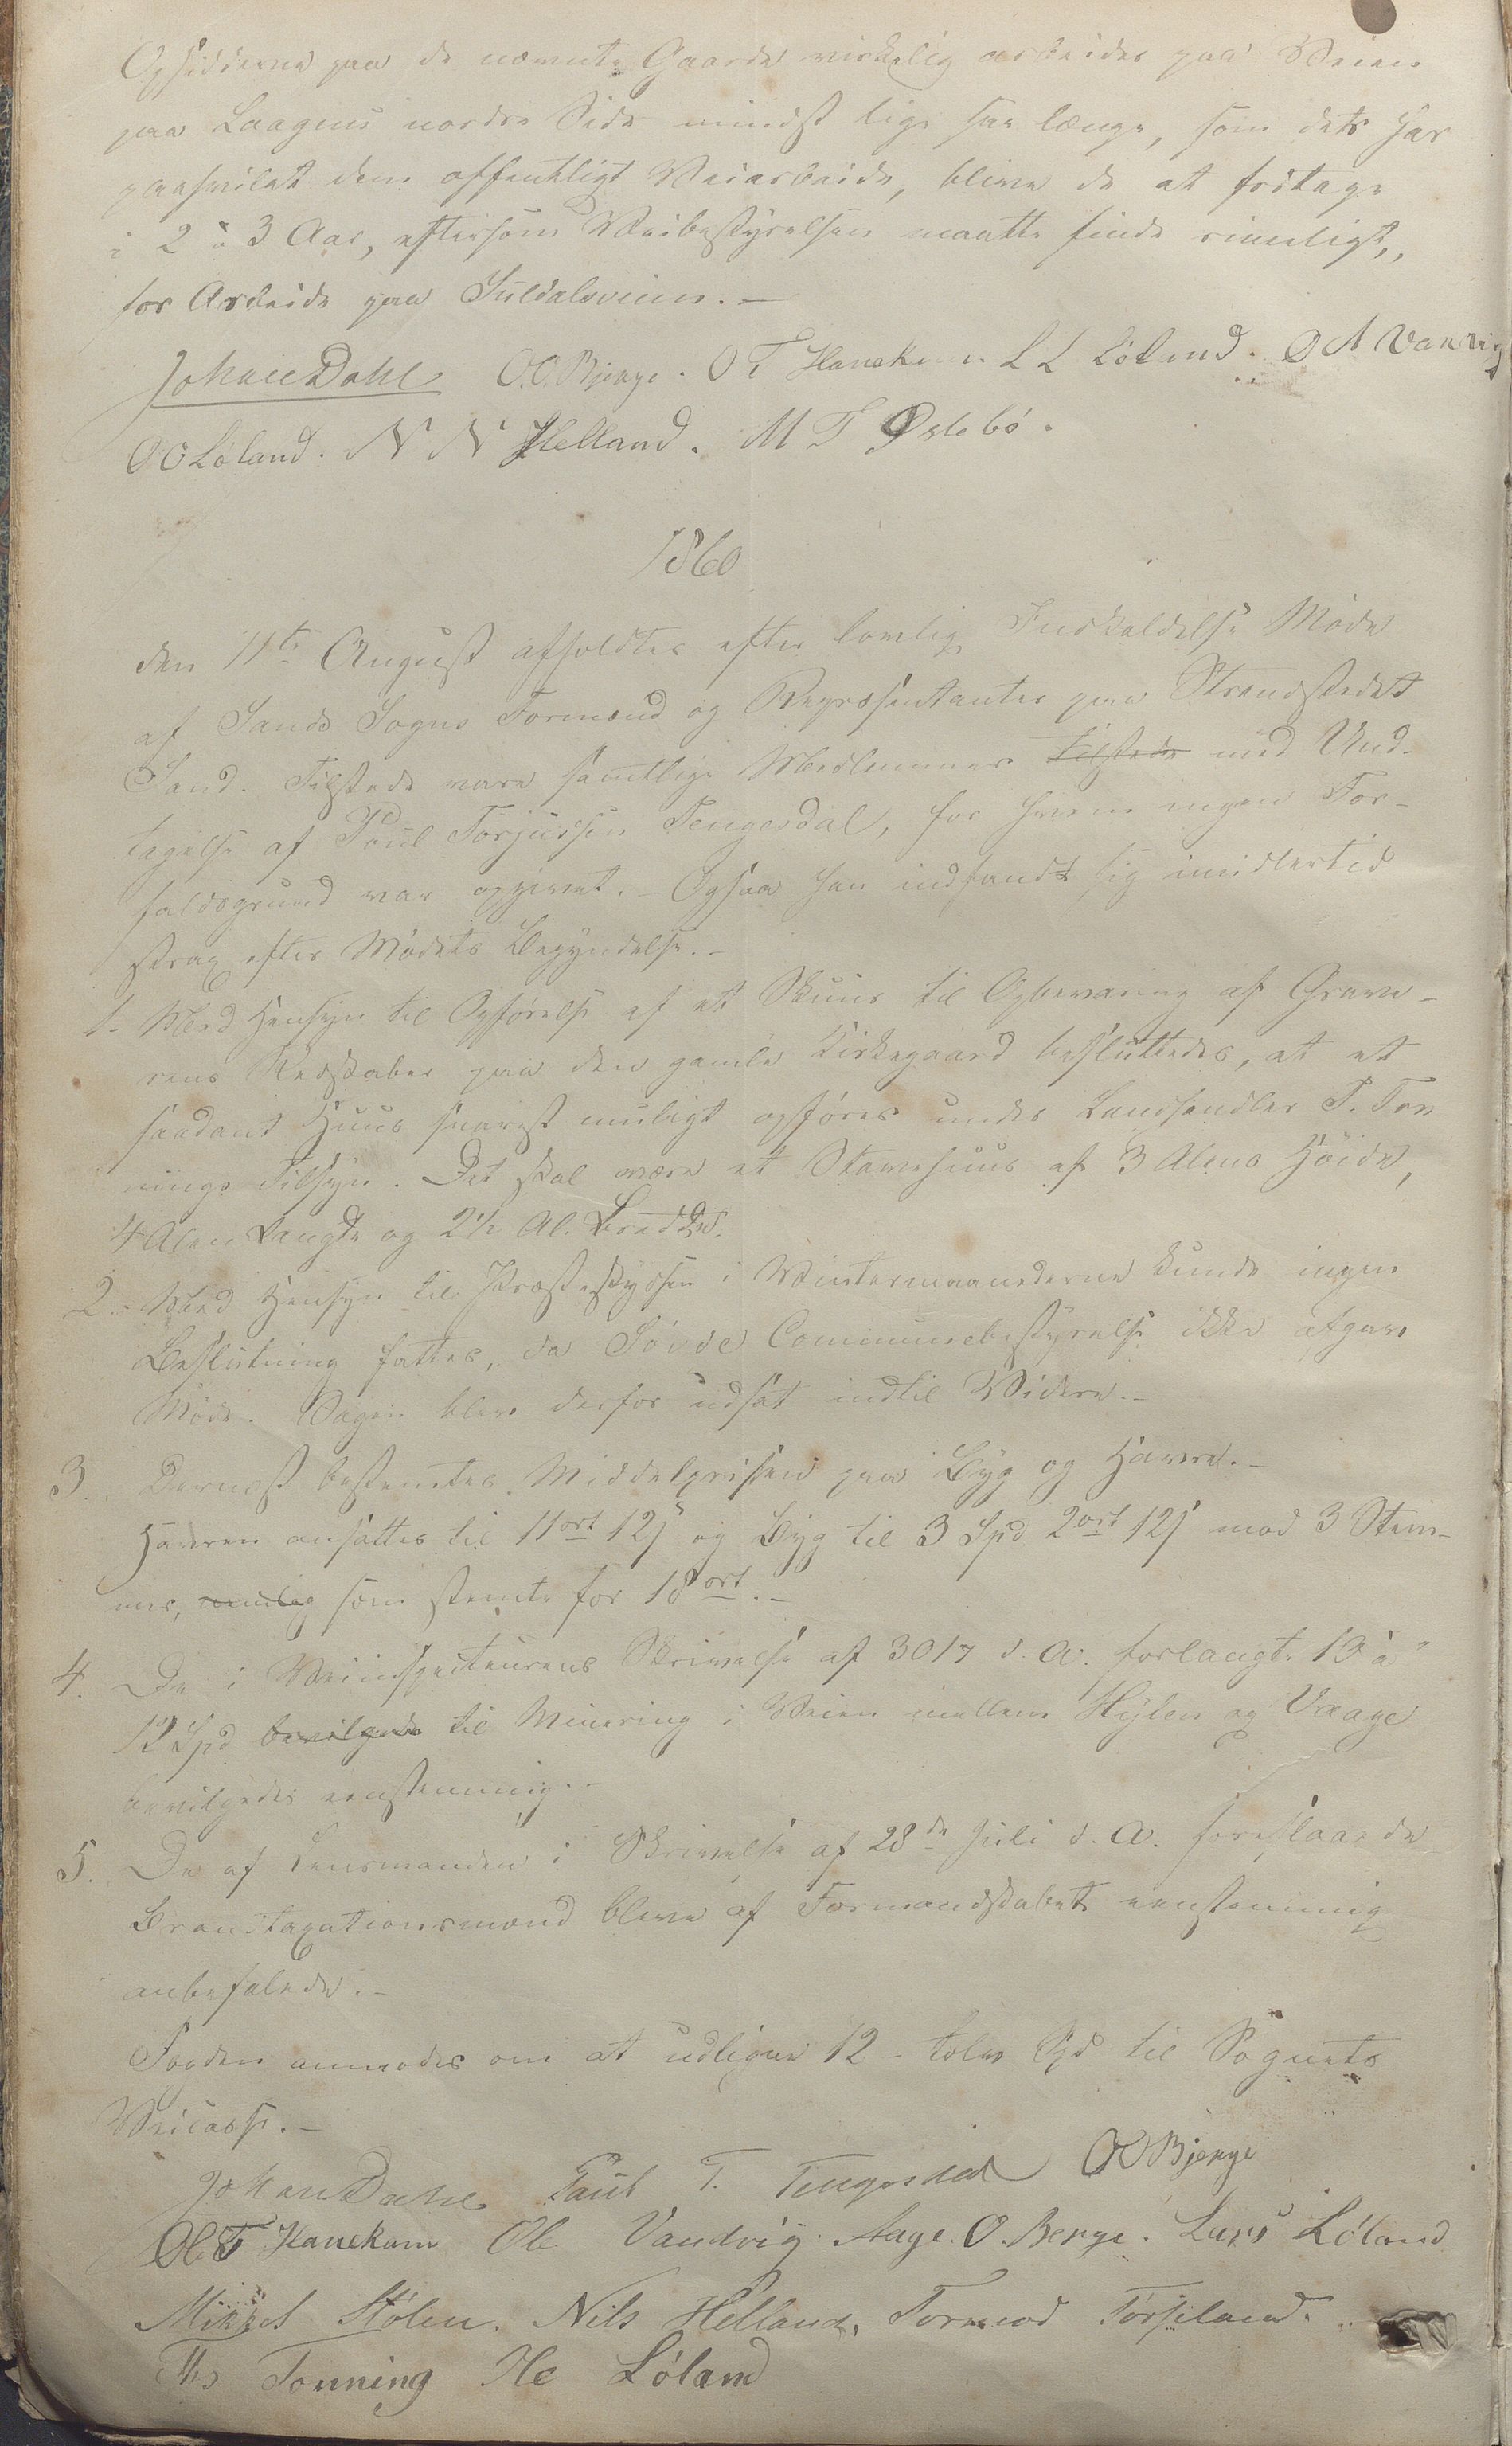 Opsidderne paa de nævnte Gaarde virkelig arbeider paa Veien
paa Laagens nordre Side mindst lige saa længe, som dets har
paahvilet dem offentligt Veiarbeide, blive de at fritage
i 2 à 3 Aar, eftersom Veibestyrelsen maatte finde rimeligt,
for Arbeide paa Suldalsveien.—
Johan Dahl O.O. Bjerge. O T Hanekam L L Löland. O A Vandvig
O O Löland. N N Helland. M T Østebö.
1860
den 11te August afholdtes efter lovlig Indkaldelse Møde
af Sands Sogns Formænd og Repræsentanter paa Strandstedet
Sand. Tilstede vare samtlige Medlemmer tilstede med Und-
tagelse af Poul Torjussen Tengesdal, for hvem ingen For-
faldsgrund var opgivet. – Ogsaa han indfandt sig imidlertid
strax efter Mødets Begyndelse.–
1. Med Hensyn til Opførelse af et Skuur til Opbevaring af Grave-
rens Redskaber paa den gamle Kirkegaard besluttedes, at et
saadant Huus snarest muligt opføres under Landhandler T. Ton
nings Tilsyn. Det skal være et Stavehuus af 3 Alens Høide,
4 Alen Længde og 2½ Al. Bredde.
2. Med Hensyn til Præsteskydsen i Vintermaanederne kunde ingen
Beslutning fattes, da Søvde Communebestyrelse ikke afgav
Møde. Sagen blev derfor udsat indtil Videre.–
3. Dernæst bestemtes Middelprisen paa Byg og Havre.–
Havren ansattes til 11 ort 12 s og Byg til 3 Spd 2 ort 12 s mod 3 Stem-
mer, nemlig som stemte for 18 ort.–
4. De i Veiinspecteurens Skrivelse af 30/7 d. A. forlangte 10 à
12 Spd bevilgede til Minering i Veien mellem Hylen og Vaage
bevilgedes eenstemmig.–
5. De af Lensmanden i Skrivelse af 28de Juli d. A. foreslaaede
Brandtaxationsmænd bleve af Formandskabet eenstemmig
anbefalede.–
Fogden anmodes om at udligne 12 – tolv Spd til Sognets
Veicasse.–
Johan Dahl Paul T. Tengesdal O O Bjerge
Ole T Hanekam Ole Vandvig. Aage. O. Berge. Lars Löland
Mikkel Stølen. Nils Helland. Tormod Forsland.
Ths Tonning Ole Löland